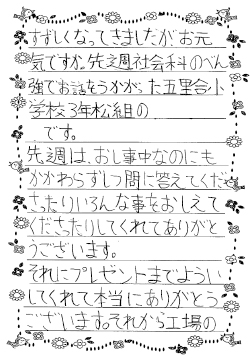 すずしくなってきましたがお元
気ですか。先週社会科のべん
強でお話をうかがった五里合小
学校3年松組の
です。
先週は、お仕事中なのにも
かかわらずしつ問に答えてくだ
さったりいろんな事をおしえて
くださったりしてくれてありがと
うございます。
それにプレゼントまでようい
してくれて本当にありがとう
ございます。それから工場の